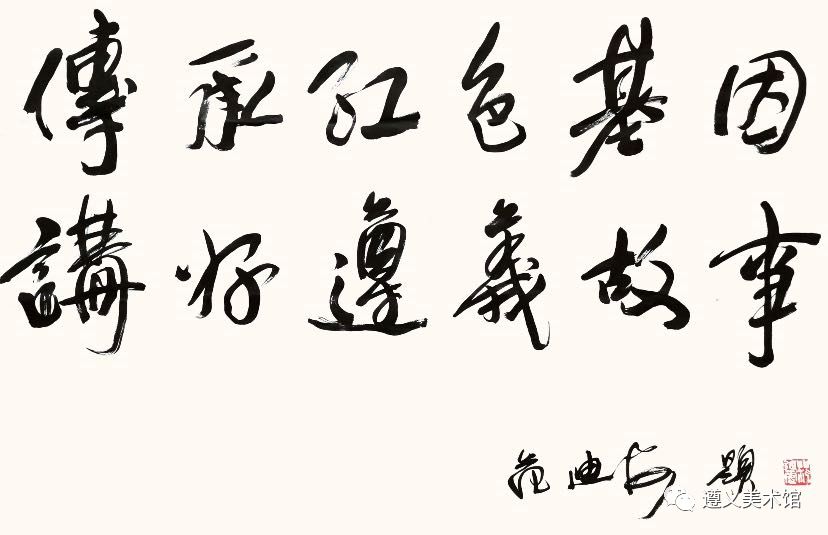 傳承紅色基因
講好遵義故事
范迪安 題
遵义美术馆